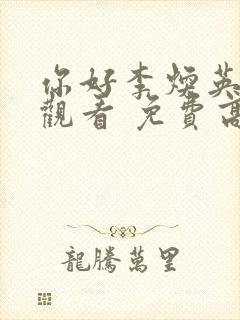 你好李煥英
觀看 免費高
龍騰萬里